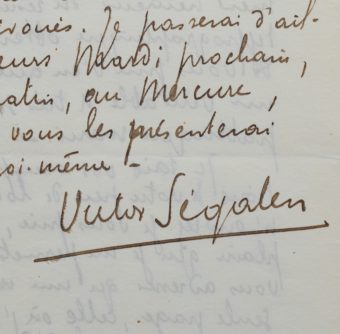 Je passerai d'ail-
eurs Mardi prochain,
au Mercure,
vous les présenterai
oi-même -
Victor Ségalen